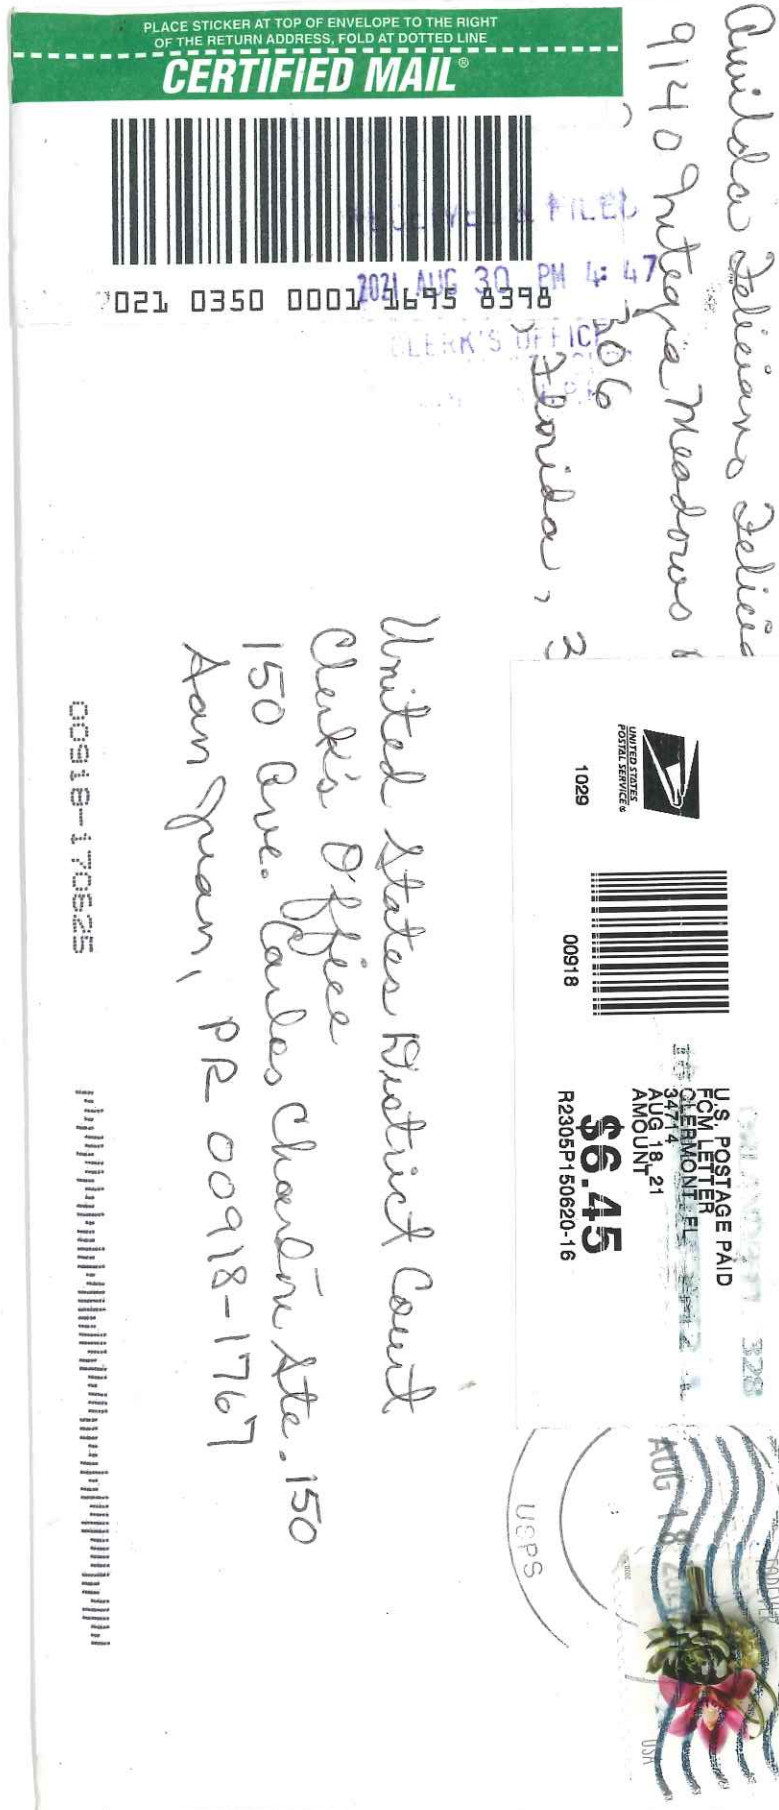 PLACE STICKER AT TOP OF ENVELOPE TO THE RIGHT
OF THE RETURN ADDRESS, FOLD AT DOTTED LINE
CERTIFIED MAIL®
7021 0350 0001 1695 8398
RECEIVED & FILED
2021 AUG 30 PM 4:47
CLERK'S OFFICE
Awilda Feliciano
9140 Integra Meadows
306
Florida, 3
UNITED STATES
POSTAL SERVICE®
1029
00918
U.S. POSTAGE PAID
FCM LETTER
CLERMONT, FL
34714
AUG 18, 21
AMOUNT
$6.45
R2305P150620-16
328
AUG 18
USPS
FOREVER
USA
United States District Court
Clerk's Office
150 Ave. Carlos Chardón Ste. 150
San Juan, PR 00918-1767
00918-170625